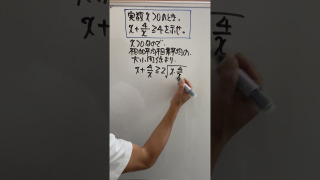 実数 x>0のとき、
x+4/x≧4を示せ。
x>0なので
相加平均と相乗平均の
大小関係より
x+4/x≧2√x・4/x